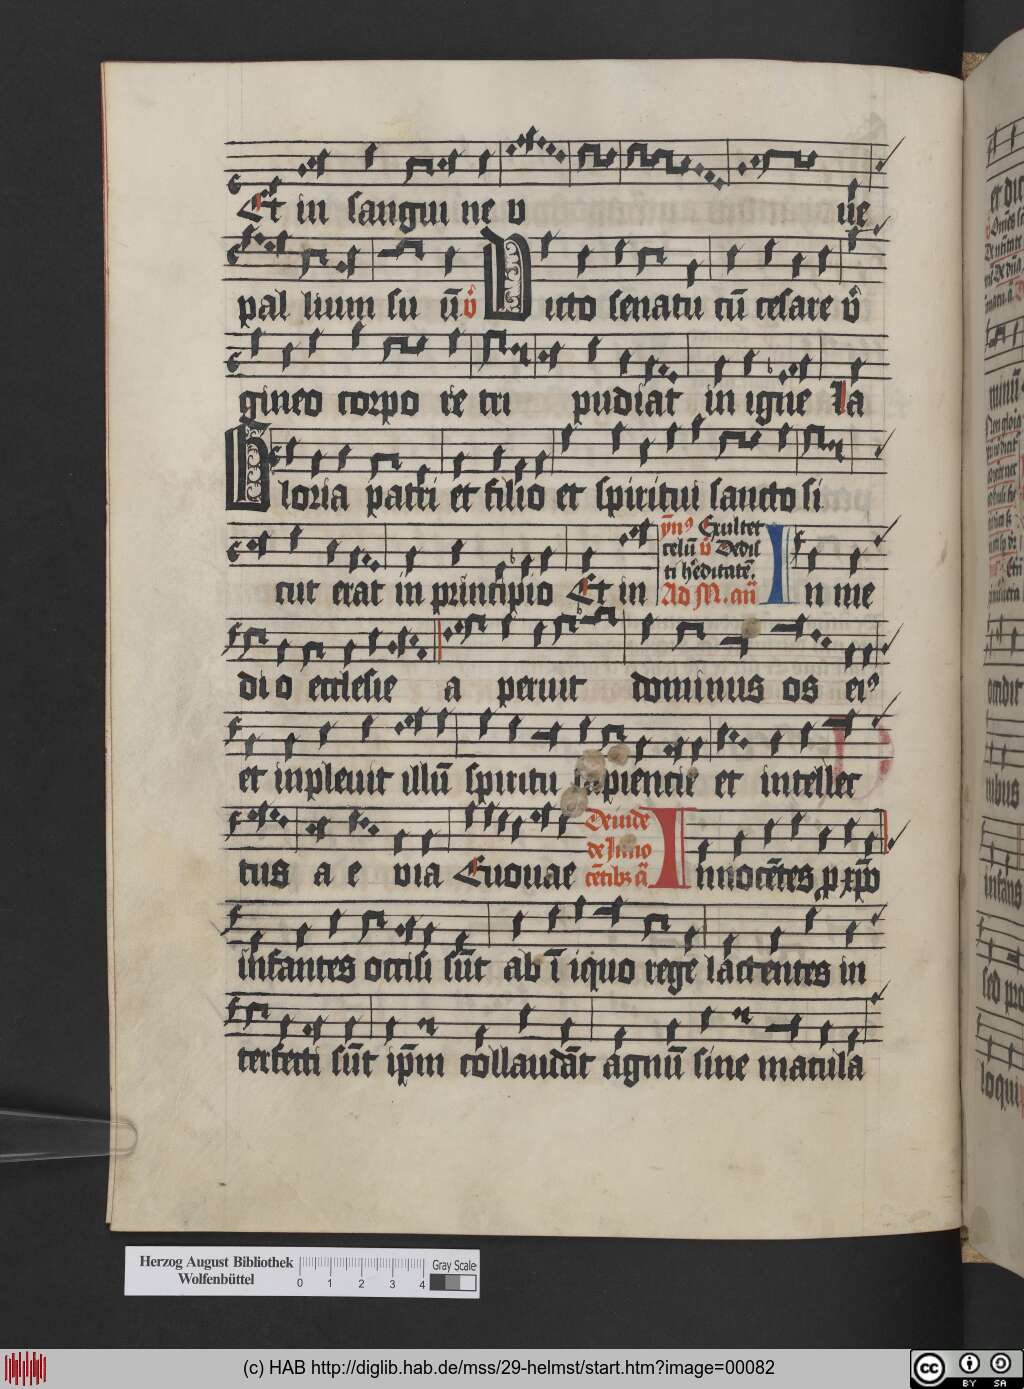 Et in sangui ne v ue
pal lium su ū v̊ Victo senatu cū cesare v̊
gineo corpo re tri pudiat in igne La
Gloria patri et filio et spiritui sancto si
cut erat in principio Et in
ȳnꝰ Exultet
celū v̊ Dedit
ti h̓editatē.
Ad M. añ
In me
dio ecclesie a peruit dominus os eiꝰ
et inpleuit illū spiritu sapiencie et intellec
tus a e via Euouae
Deinde
de Inno
cētibꝫ ā
Innocētes ꝓ xp̄o
infantes occisi sūt ab ī iquo rege lactentes in
terfecti sūt ip̄m collaudāt agnū sine macula
Herzog August Bibliothek
Wolfenbüttel
0 1 2 3 4
Gray Scale
(c) HAB http://diglib.hab.de/mss/29-helmst/start.htm?image=00082
cc BY SA